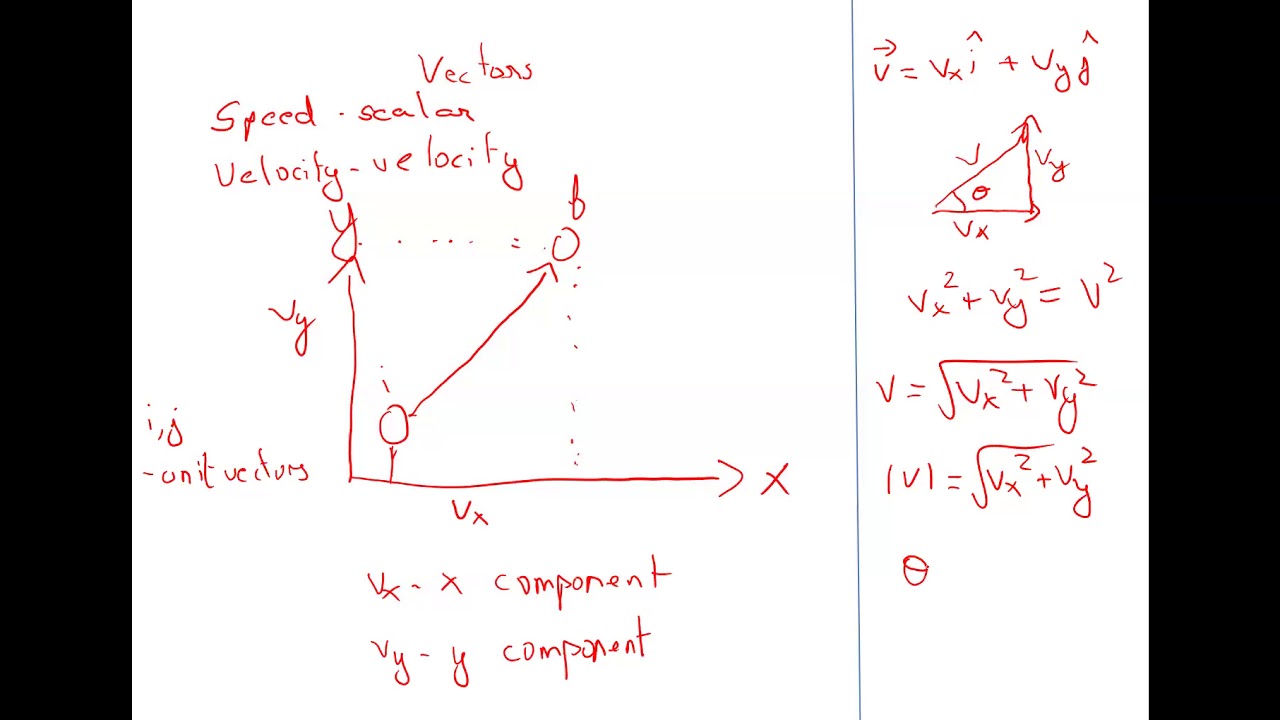 Vectors
Speed - scalar
Velocity - velocity
y
f
Vy
i
i, j
- unit vectors
X
Vx
Vx - x component
Vy - y component
v⃗ = Vx î + Vy ĵ
V
Vy
θ
Vx
Vx² + Vy² = V²
V = √Vx² + Vy²
|V| = √Vx² + Vy²
θ